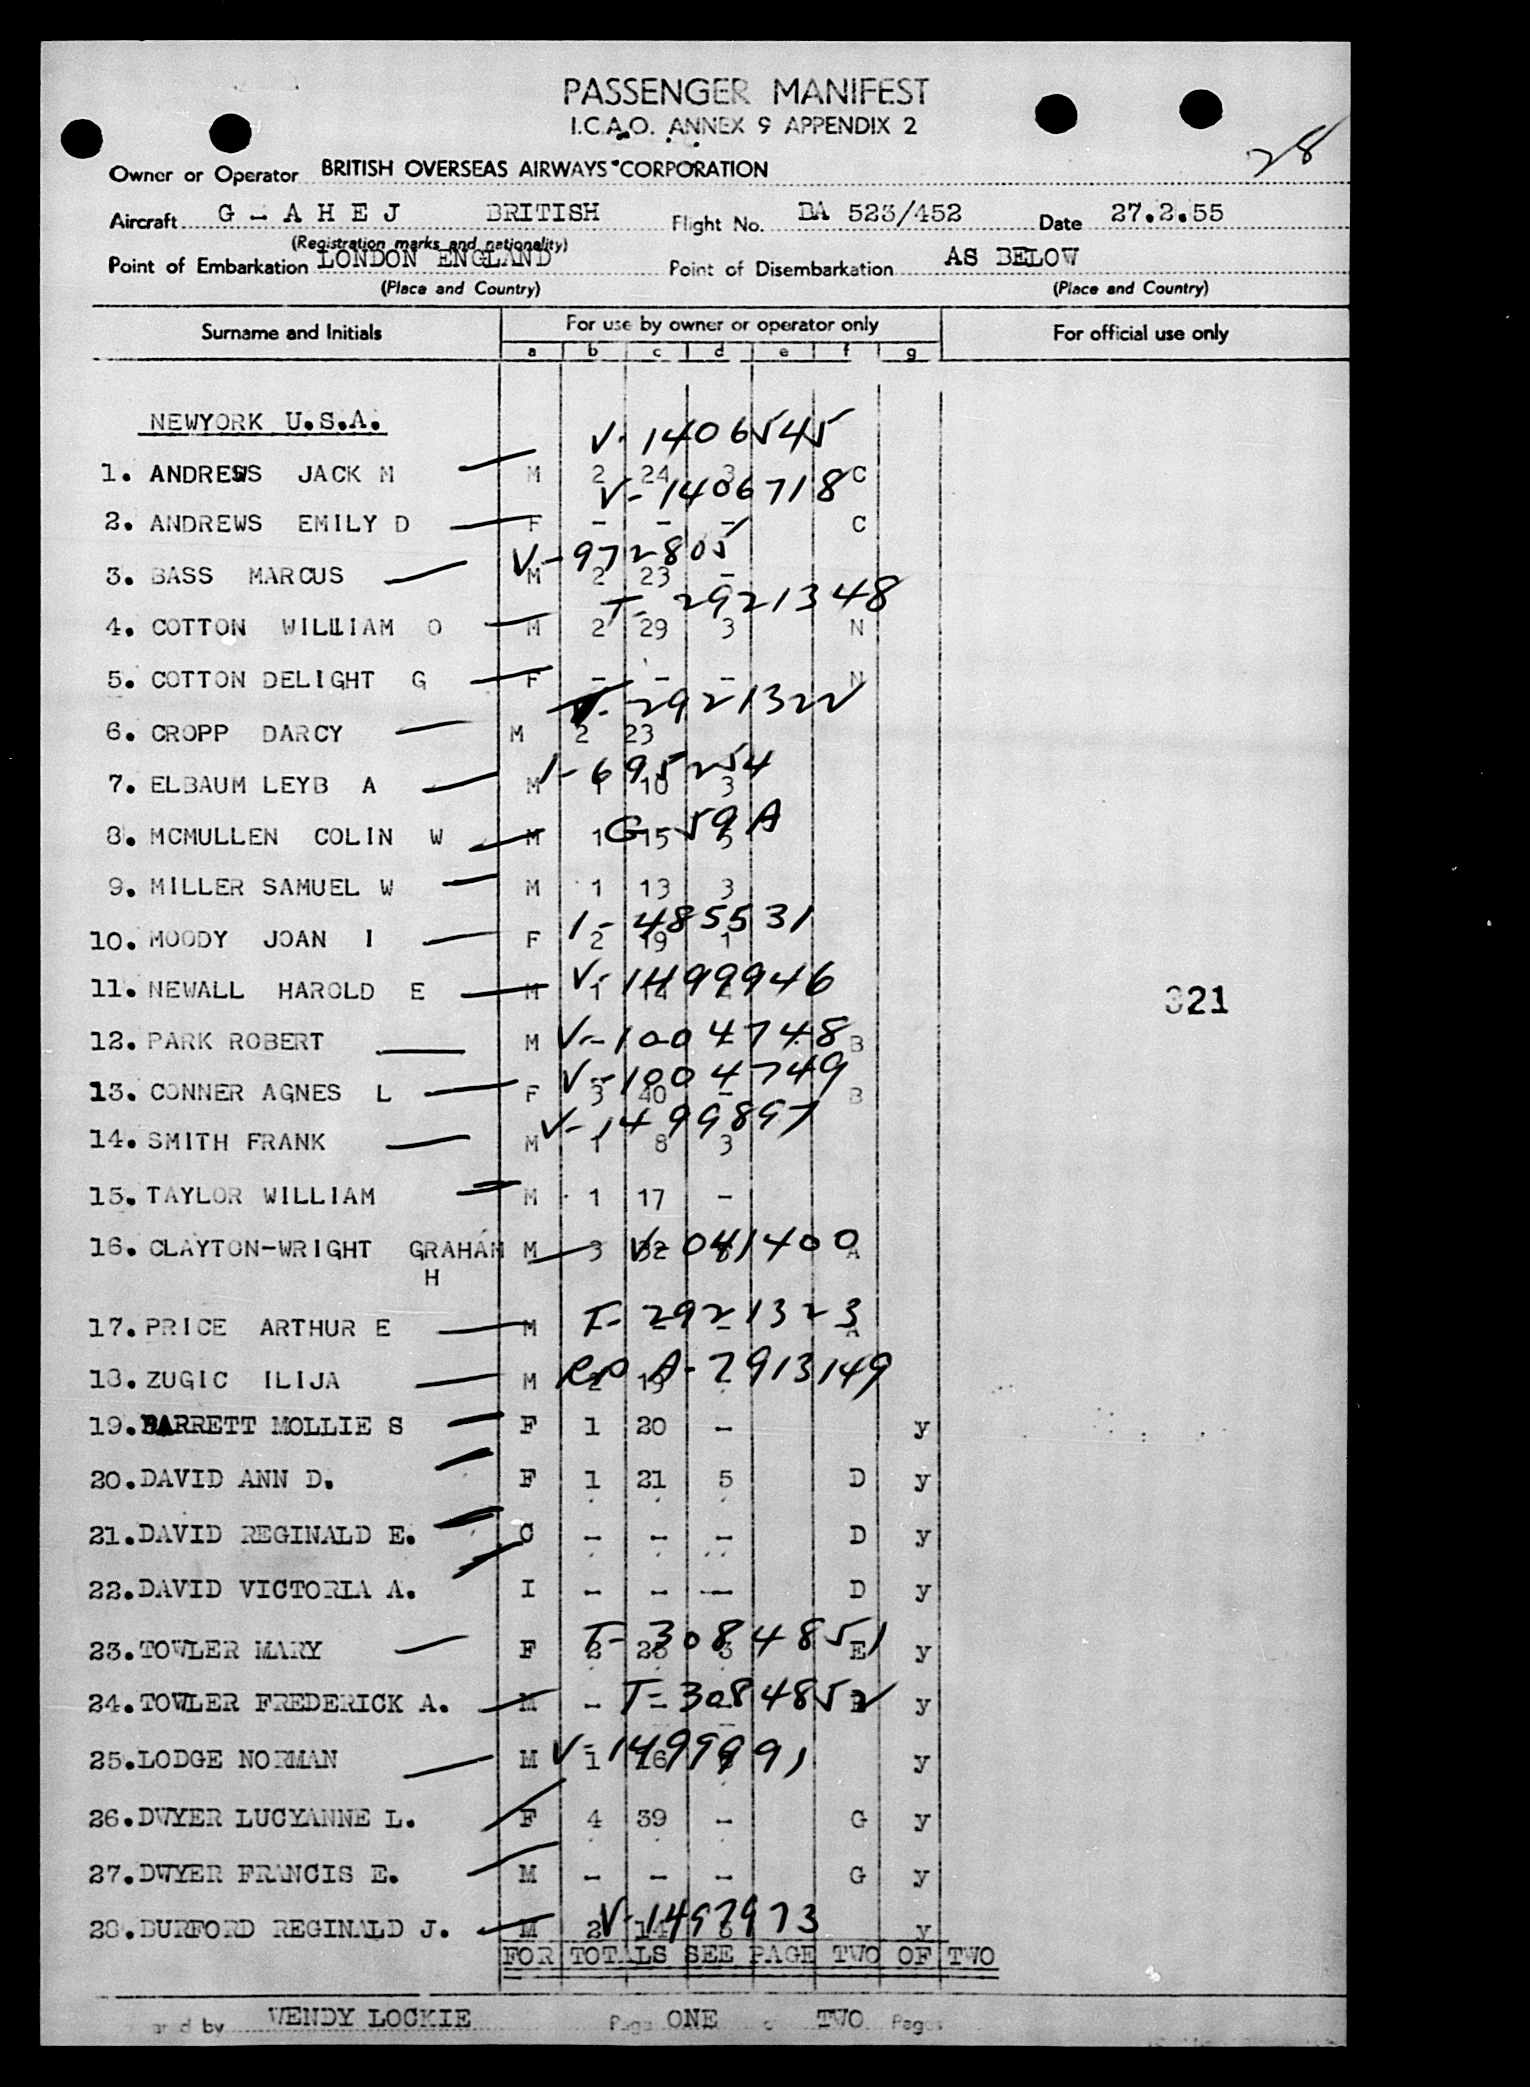 PASSENGER MANIFEST
I.C.A.O. ANNEX 9 APPENDIX 2
28
Owner or Operator BRITISH OVERSEAS AIRWAYS CORPORATION
Aircraft G - A H E J BRITISH Flight No. BA 523/452 Date 27.2.55
(Registration marks and nationality)
Point of Embarkation LONDON ENGLAND Point of Disembarkation AS BELOW
(Place and Country) (Place and Country)
Surname and Initials For use by owner or operator only For official use only
a b c d e f g
NEWYORK U.S.A.
V-1406545
1. ANDREWS JACK M M 2 24 3 C
V-1406718
2. ANDREWS EMILY D F - - - C
V-972805
3. BASS MARCUS M 2 23 -
T-2921348
4. COTTON WILLIAM O M 2 29 3 N
5. COTTON DELIGHT G F - - - N
T-2921322
6. CROPP DARCY M 2 23
1-695254
7. ELBAUM LEYB A M 1 10 3
G-59A
8. MCMULLEN COLIN W M 1 15 5
9. MILLER SAMUEL W M 1 13 3
1-485531
10. MOODY JOAN I F 2 19 1
V-1499946
11. NEWALL HAROLD E M 1 14
321
12. PARK ROBERT M V-1004748 B
V-1004749
13. CONNER AGNES L F 3 40 - B
V-1499897
14. SMITH FRANK M 1 8 3
15. TAYLOR WILLIAM M 1 17 -
16. CLAYTON-WRIGHT GRAHAM M 3 32 V-041400 A
H
T-2921323
17. PRICE ARTHUR E M - - - A
18. ZUGIC ILIJA M 2 19 A-7913149
19. BARRETT MOLLIE S F 1 20 - y
20. DAVID ANN D. F 1 21 5 D y
21. DAVID REGINALD E. C - - - D y
22. DAVID VICTORIA A. I - - - D y
T-3084851
23. TOWLER MARY F 2 E y
24. TOWLER FREDERICK A. M - T-3084852 E y
25. LODGE NORMAN M 1 16 V-1499991 y
26. DWYER LUCYANNE L. F 4 39 - G y
27. DWYER FRANCIS E. M - - - G y
28. BURFORD REGINALD J. M 2 14 V-1497973 y
FOR TOTALS SEE PAGE TWO OF TWO
by WENDY LOCKIE Page ONE of TWO Pages